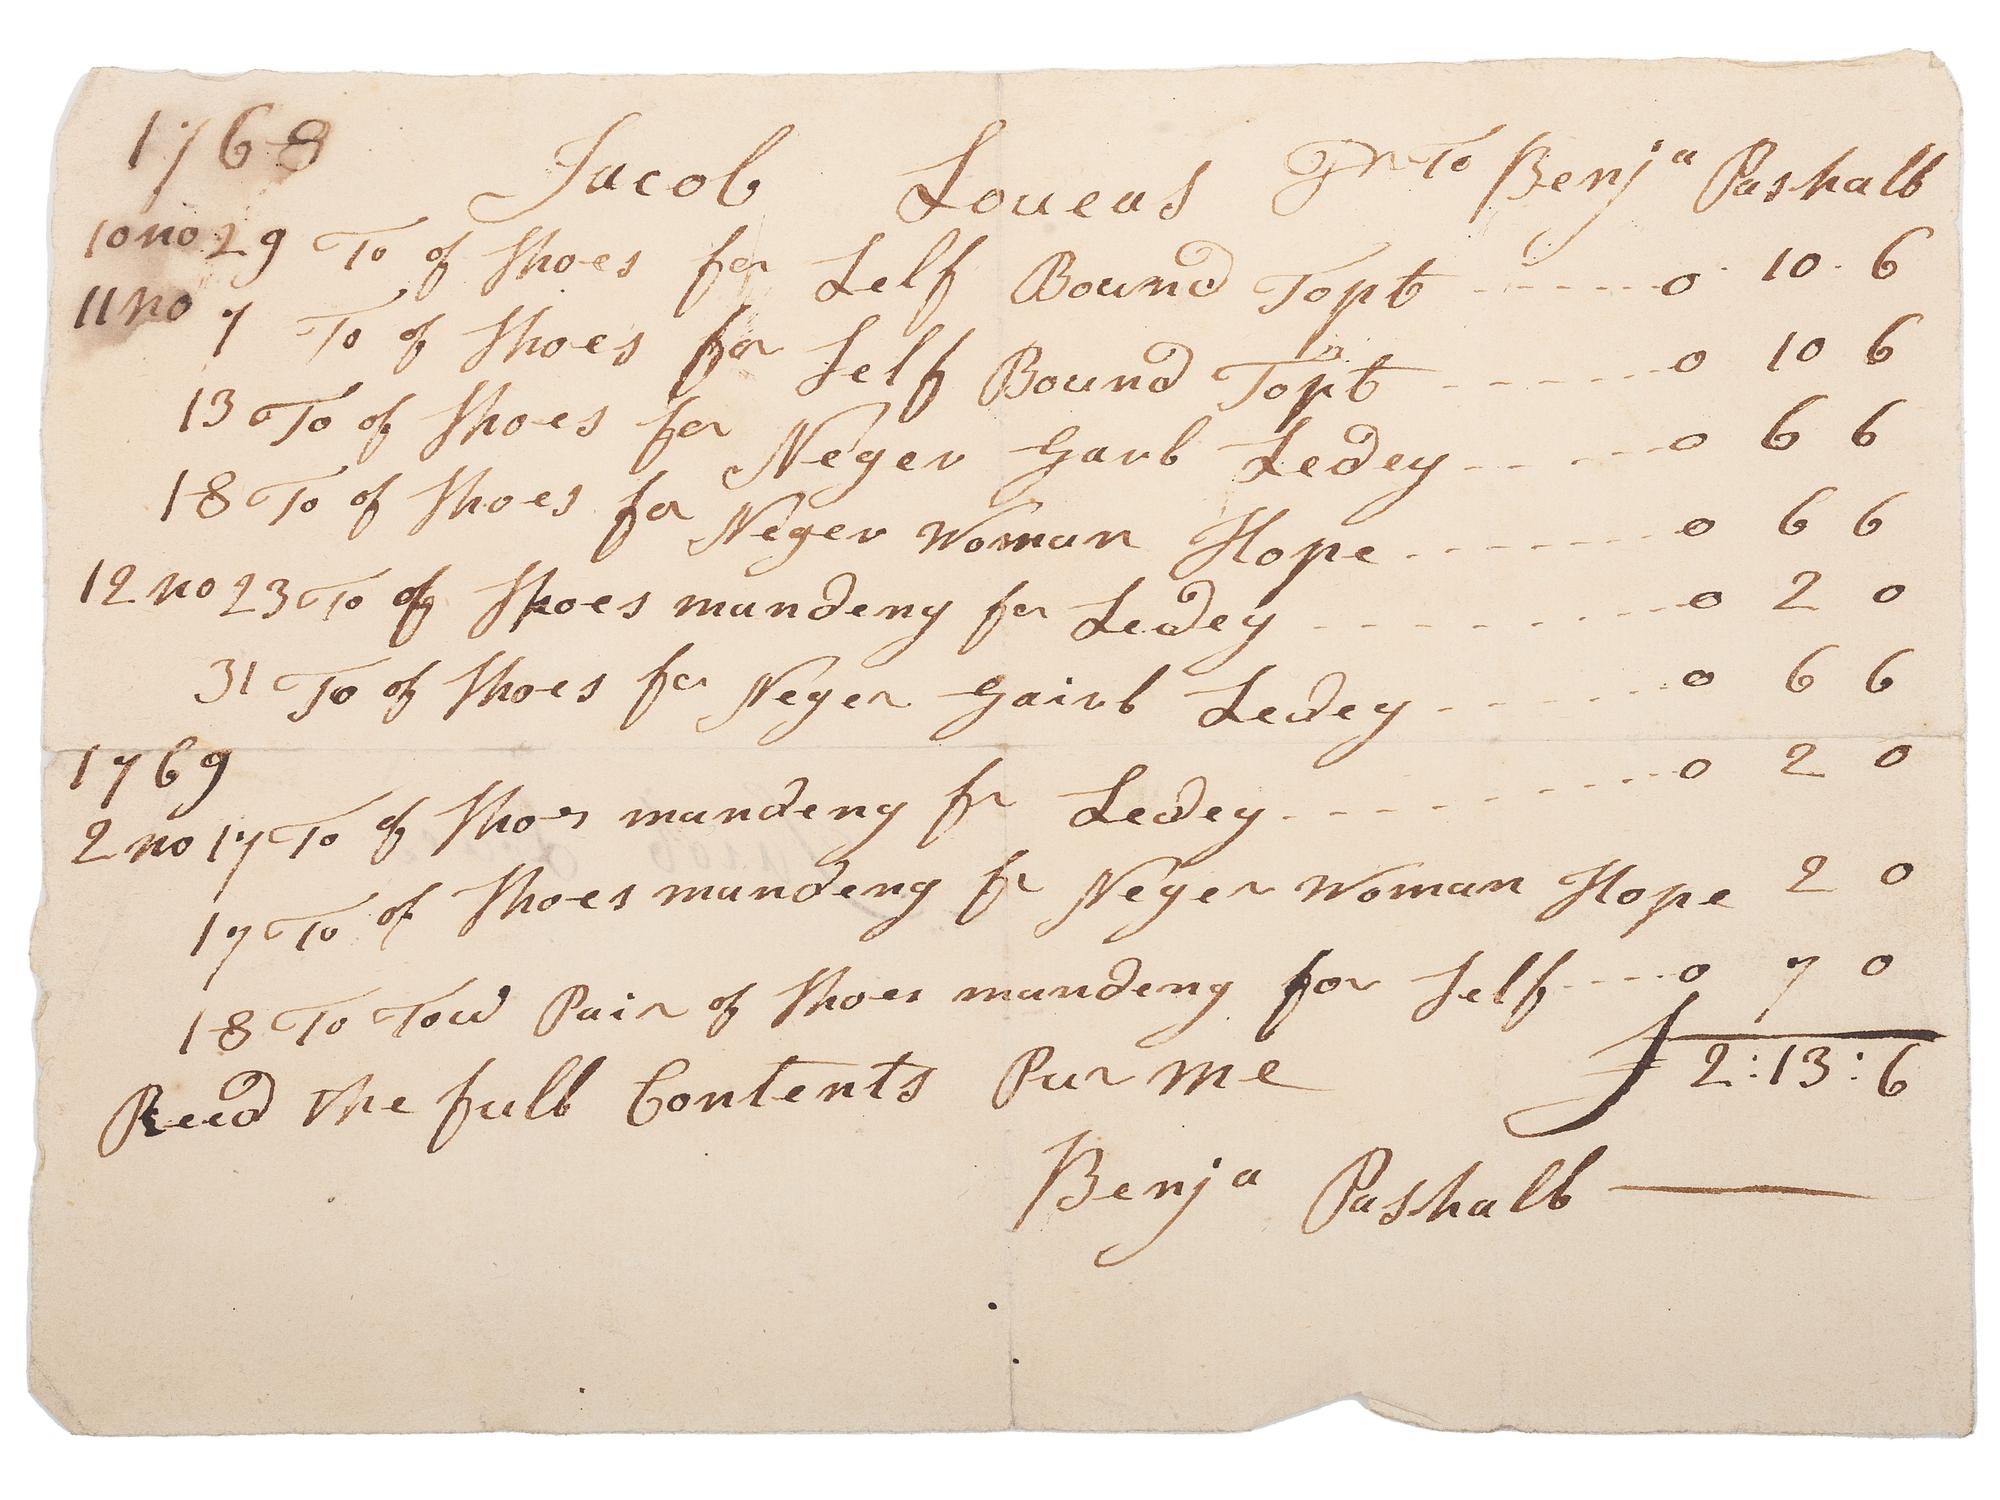 1768
Jacob Loueas Dr To Benja Pashall
10 mo 29 To of Shoes for Self Bound Topt 0 10 6
11 mo 7 To of Shoes for Self Bound Topt 0 10 6
13 To of Shoes for Neger Garl Ledey 0 6 6
18 To of Shoes for Neger Woman Hope 0 6 6
12 mo 23 To of Shoes mandeng for Ledey 0 2 0
31 To of Shoes for Neger Gairl Ledey 0 6 6
1769
2 mo 17 To of Shoes mandeng for Ledey 0 2 0
17 To of Shoes mandeng for Neger Woman Hope 2 0
18 To Tow Pair of Shoes mandeng for Self 0 7 0
£ 2:13:6
Recd the full Contents Pur me
Benja Pashall